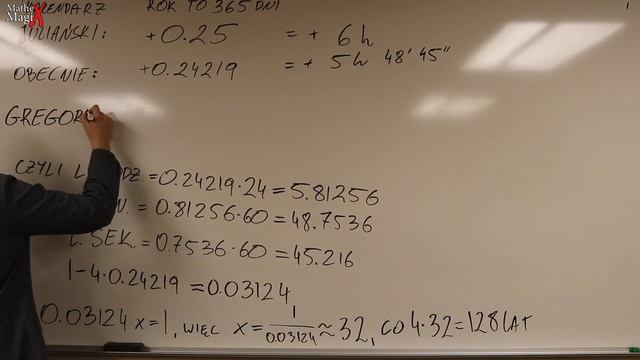 Mathe MagiX
KALENDARZ ROK TO 365 DNI
JULIAŃSKI: +0.25 = + 6h
OBECNIE: +0.24219 = + 5h 48' 45''
GREGOR
CZYLI L. = 0.24219·24 = 5.81256
= 0.81256·60 = 48.7536
L. SEK. = 0.7536·60 = 45.216
1-4·0.24219 = 0.03124
0.03124 x = 1, WIĘC x = 1/0.03124 ≈ 32, CO 4·32 = 128 LAT